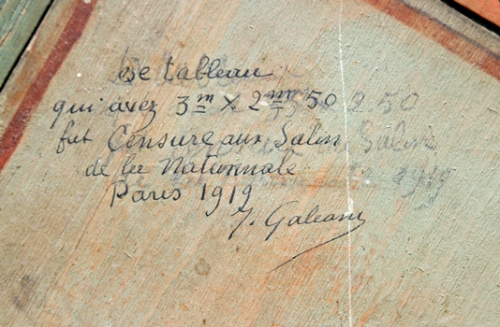 Ce tableau
qui avez 3m x 2m 50 2 50
fut Censure aux Salon Salon
de la Nationnale
Paris 1919 1919
J. Galeani